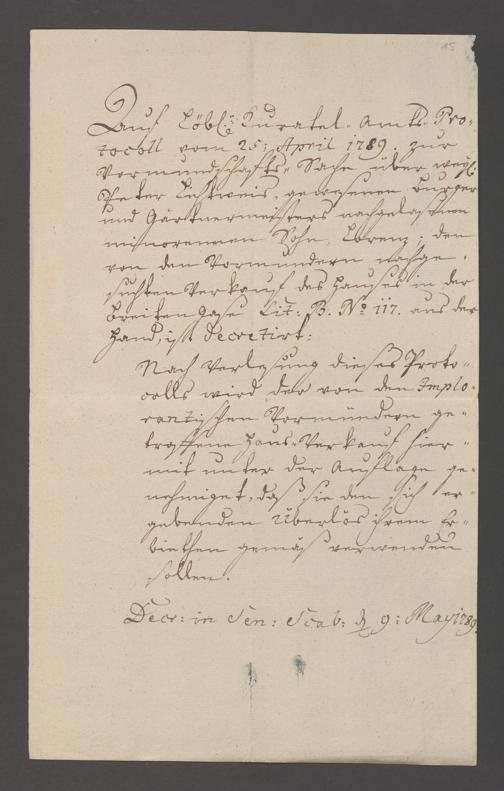 15
Auf Löbl: Curatel-Amts-Pro-
tocoll vom 25: April 1789. zur
Vormundschafts-Sache über weyl:
Peter Lichtweis, gewesenen Burger
und Gärtnermeisters nachgelassenen
minorennen Sohn, Lorenz; den
von den Vormündern nachge-
suchten Verkauf des Hauses in der
breiten Gase Lit: B. No 117. aus der
Hand, ist decretirt:
Nach Verlesung dieses Proto-
colls wird der von den Implo-
rantischen Vormündern ge-
troffene Haus-Verkauf hier-
mit unter der Auflage ge-
nehmiget, daß sie den sich er-
gebenden Überlös ihrem Er-
biethen gemäß verwenden
sollen.
Decr: in Sen: Scab: d 9: May 1789.